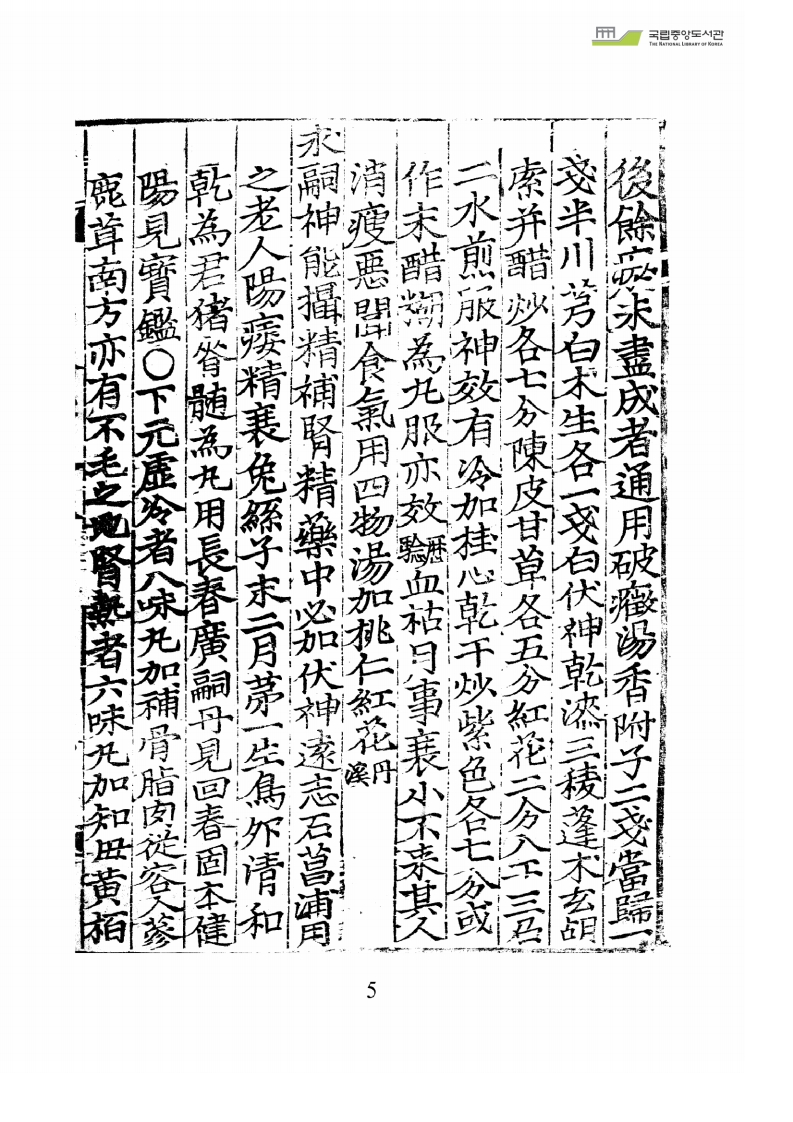 국립중앙도서관
THE NATIONAL LIBRARY OF KOREA
後餘瘀未盡成者通用破癥湯香附子二戔當歸一
戔半川芎白朮生各一戔白伏神乾漆三稜蓬朮玄胡
索并醋炒各七分陳皮甘草各五分紅花二分入干三召
二水煎服神效有冷加桂心乾干炒紫色各七分或
作末醋糊為丸服亦效歷驗血祜月事衰小不來其人
消瘦惡聞食氣用四物湯加桃仁紅花丹溪
求嗣神能攝精補腎精藥中必加伏神遠志石菖蒲用
之老人陽痿精衰兔絲子末二月苐一生鳥卵清和
乾為君猪脊髄為丸用長春廣嗣丹見回春固本健
陽見寶鑑〇下元虛冷者八味丸加補骨脂肉從容人蔘
鹿茸南方亦有不毛之地腎熱者六味丸加知毋黃栢
5